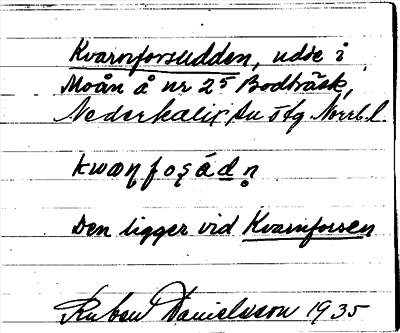 Kvarnforsudden, udde i
Moån å nr 25 Bodträsk,
Nederkalix sn o tg Norrb. l.
kwaɳfoʂádn̥
Den ligger vid Kvarnforsen
Ruben Danielsson 1935